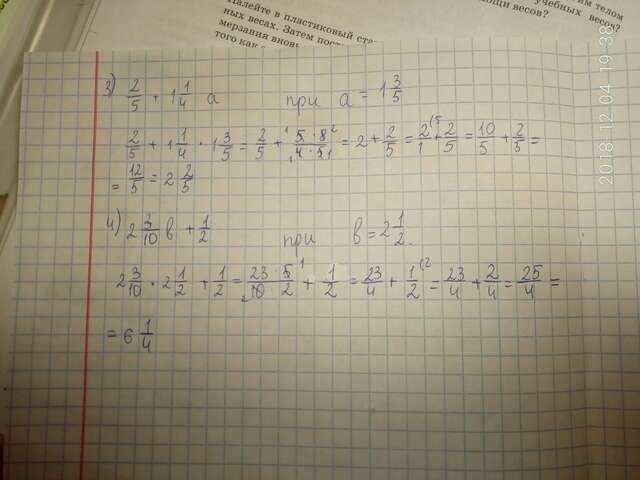 Налейте в пластиковый ста
ных весах. Затем пост
мерзания вновь
того как
им телом
учебных весов?
ощи весов?
2018-12-04 19:38
3) 2/5 + 1 1/4 a при a = 1 3/5
2/5 + 1 1/4 · 1 3/5 = 2/5 + 5 · 8/4 · 5 = 2 + 2/5 = 2/1 + 2/5 = 10/5 + 2/5 =
= 12/5 = 2 2/5
4) 2 3/10 в + 1/2 при в = 2 1/2.
2 3/10 · 2 1/2 + 1/2 = 23 · 5/10 · 2 + 1/2 = 23/4 + 1/2 = 23/4 + 2/4 = 25/4 =
= 6 1/4